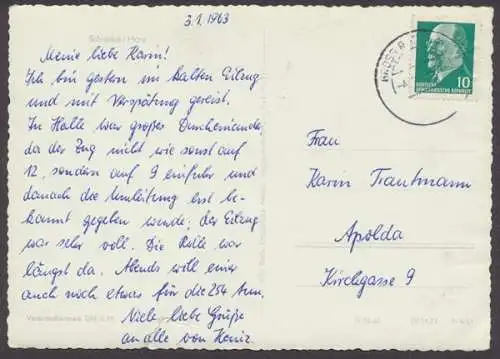 3.1.1963
Schierke / Harz
Meine liebe Karin!
Ich bin gestern im kalten Eilzug
und mit Verspätung gereist.
In Halle war großes Durcheinander,
da der Zug nicht wie sonst auf
12, sondern auf 9 einfuhr und
danach die Umleitung erst be-
kannt gegeben wurde; der Eilzug
war sehr voll. Die Rolle war
längst da. Abends will einer
auch noch etwas für die 254 tun.
Viele liebe Grüße
an alle von Heinz.
10
DEUTSCHE
DEMOKRATISCHE REPUBLIK
Frau
Karin Trautmann
Apolda
Kirchgasse 9